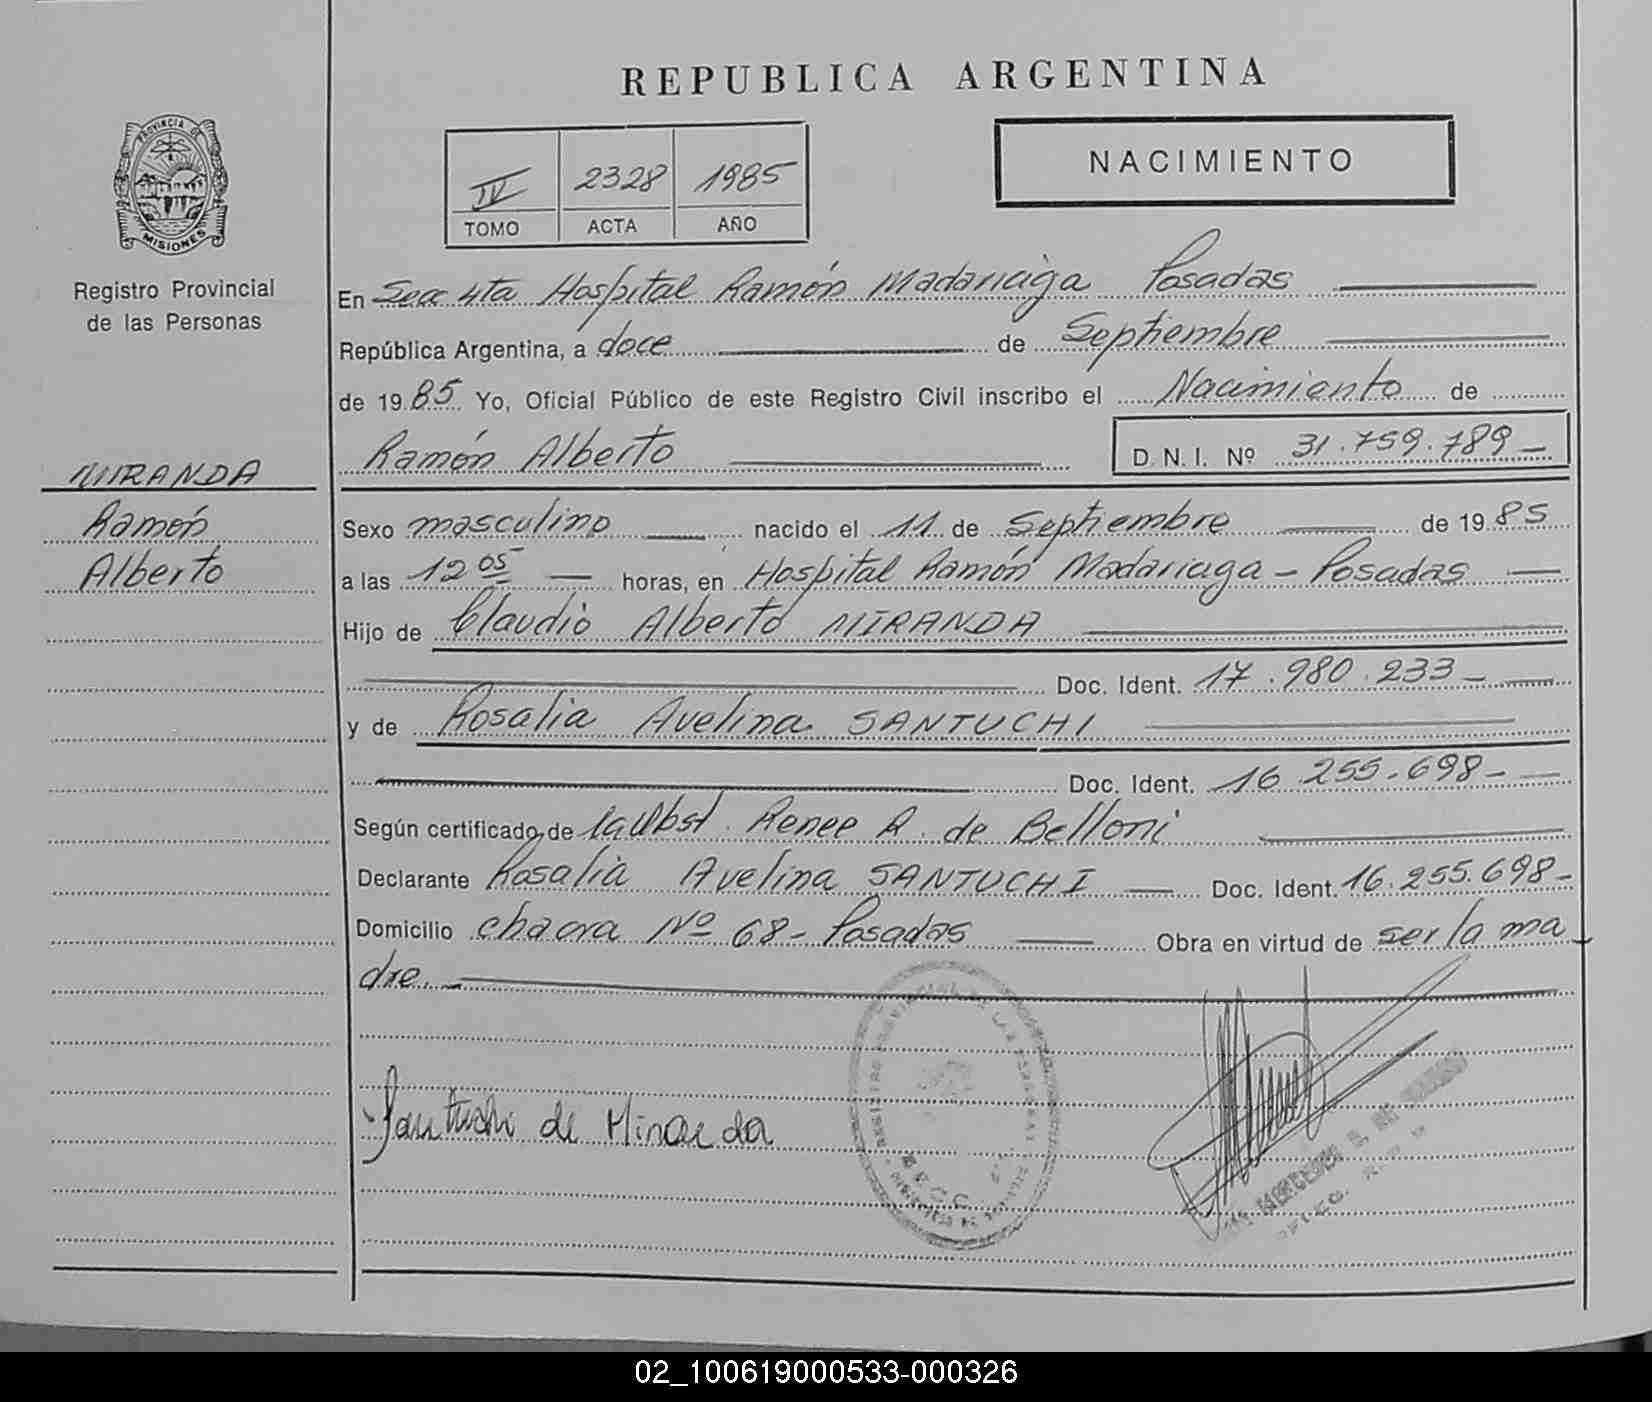 REPUBLICA ARGENTINA
PROVINCIA DE
MISIONES
Registro Provincial
de las Personas
IV 2328 1985
TOMO ACTA AÑO
NACIMIENTO
En Secc 4ta Hospital Ramón Madariaga Posadas
República Argentina, a doce de Septiembre
de 1985 Yo, Oficial Público de este Registro Civil inscribo el Nacimiento de
Ramón Alberto D. N. I. Nº 31.759.789-
MIRANDA
Ramón
Alberto
Sexo masculino nacido el 11 de Septiembre de 1985
a las 12 05 horas, en Hospital Ramón Madariaga - Posadas
Hijo de Claudio Alberto MIRANDA
Doc. Ident. 17.980.233-
y de Rosalia Avelina SANTUCHI
Doc. Ident. 16.255.698-
Según certificado de la Obst. Renee R. de Belloni
Declarante Rosalia Avelina SANTUCHI Doc. Ident. 16.255.698-
Domicilio chacra Nº 68 - Posadas Obra en virtud de ser la ma
dre.
Santuchi de Miranda
02_100619000533-000326